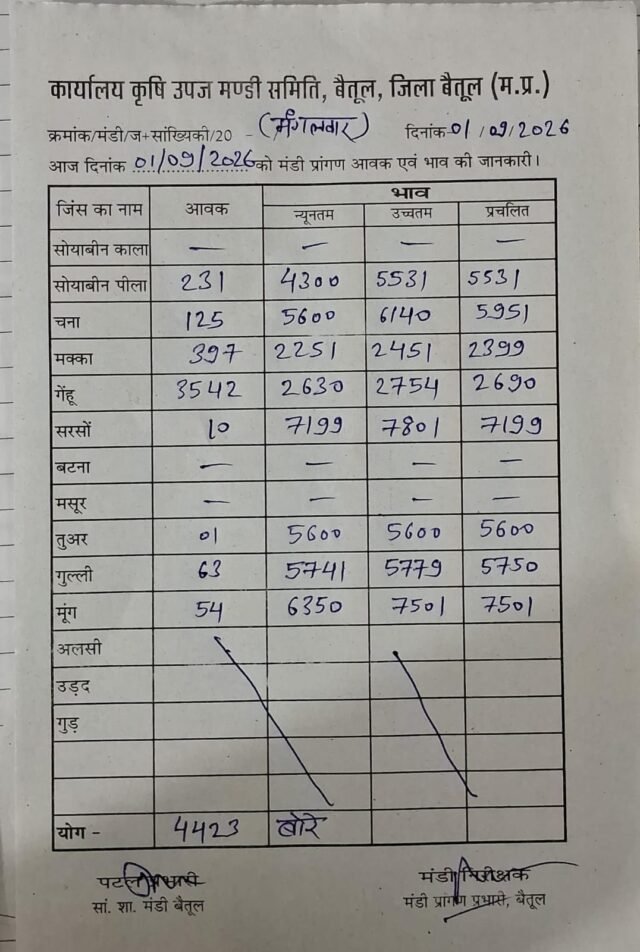 कार्यालय कृषि उपज मण्डी समिति, बैतूल, जिला बैतूल (म.प्र.)
क्रमांक/मंडी/ज+सांख्यिकी/20 - (मंगलवार) दिनांक 01/09/2026
आज दिनांक 01/09/2026 को मंडी प्रांगण आवक एवं भाव की जानकारी।
जिंस का नाम आवक भाव
न्यूनतम उच्चतम प्रचलित
सोयाबीन काला — — — —
सोयाबीन पीला 231 4300 5531 5531
चना 125 5600 6140 5951
मक्का 397 2251 2451 2399
गेंहू 3542 2630 2754 2690
सरसों 10 7199 7801 7199
बटना — — — —
मसूर — — — —
तुअर 01 5600 5600 5600
गुल्ली 63 5741 5779 5750
मूंग 54 6350 7501 7501
अलसी
उड़द
गुड़
योग - 4423 बोरे
मंडी निरीक्षक
सां. शा. मंडी बैतूल मंडी प्रांगण प्रभारी, बैतूल